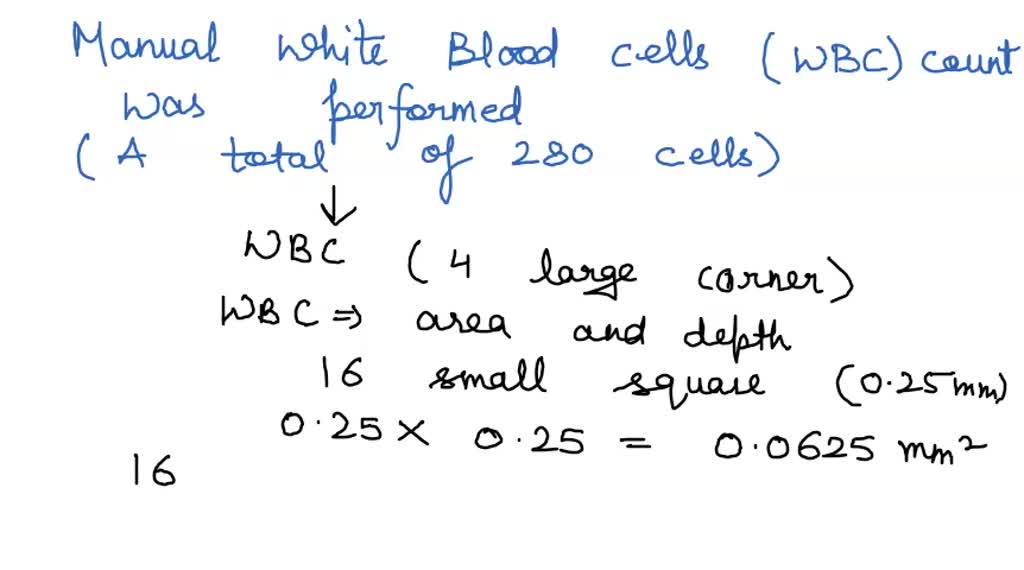 Manual White Blood cells (WBC) count
was performed
(A total of 280 cells)
↓
WBC (4 large corner)
WBC ⇒ area and depth
16 small square (0.25mm)
0.25 × 0.25 = 0.0625 mm²
16